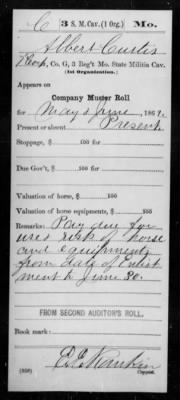 C 3 S. M. Cav. (1 Org.) Mo.
Albert Curtis
, Co. G, 3 Reg't Mo. State Militia Cav.
(1st Organization.)
Appears on
Company Muster Roll
for May & June, 186
Present or absent Present
Stoppage, $ 100 for
Due Gov't, $ 100 for
Valuation of horse, $ 100
Valuation of horse equipments, $ 100
Remarks: Pay due for
use & risk of horse
and equipments
from date of Enlist
ment to June 30.
FROM SECOND AUDITOR'S ROLL.
Book mark:
Rankin
(858) Copyist.